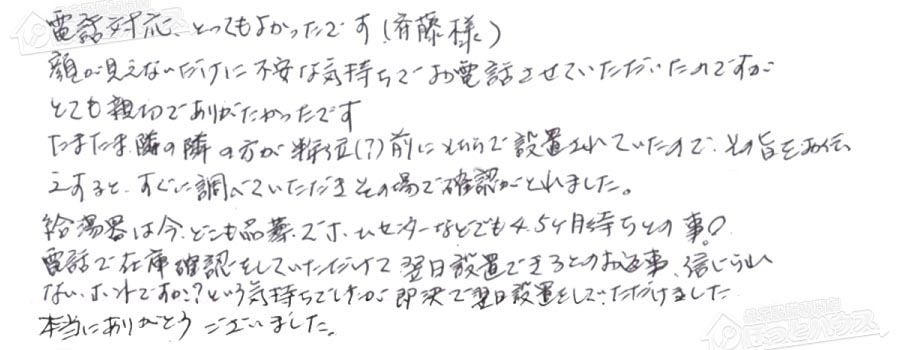 電話対応、とってもよかったです！(斉藤様)
顔が見えないだけに不安な気持ちでお電話させていただいたのですが
とても親切でありがたかったです
たまたま隣の隣の方が半年位(?)前にそちらで設置されていたので、その旨をお伝
えすると、すぐに調べていただきその場で確認がとれました。
給湯器は今、どこも品薄でホームセンターなどでも4.5ヶ月待ちとの事。
電話で在庫確認をしていただけて翌日設置できるとのお返事、信じられ
ない、ホントですか？という気持ちでしたが即決で翌日設置をしていただけました
本当にありがとうございました。
ほっとハウス